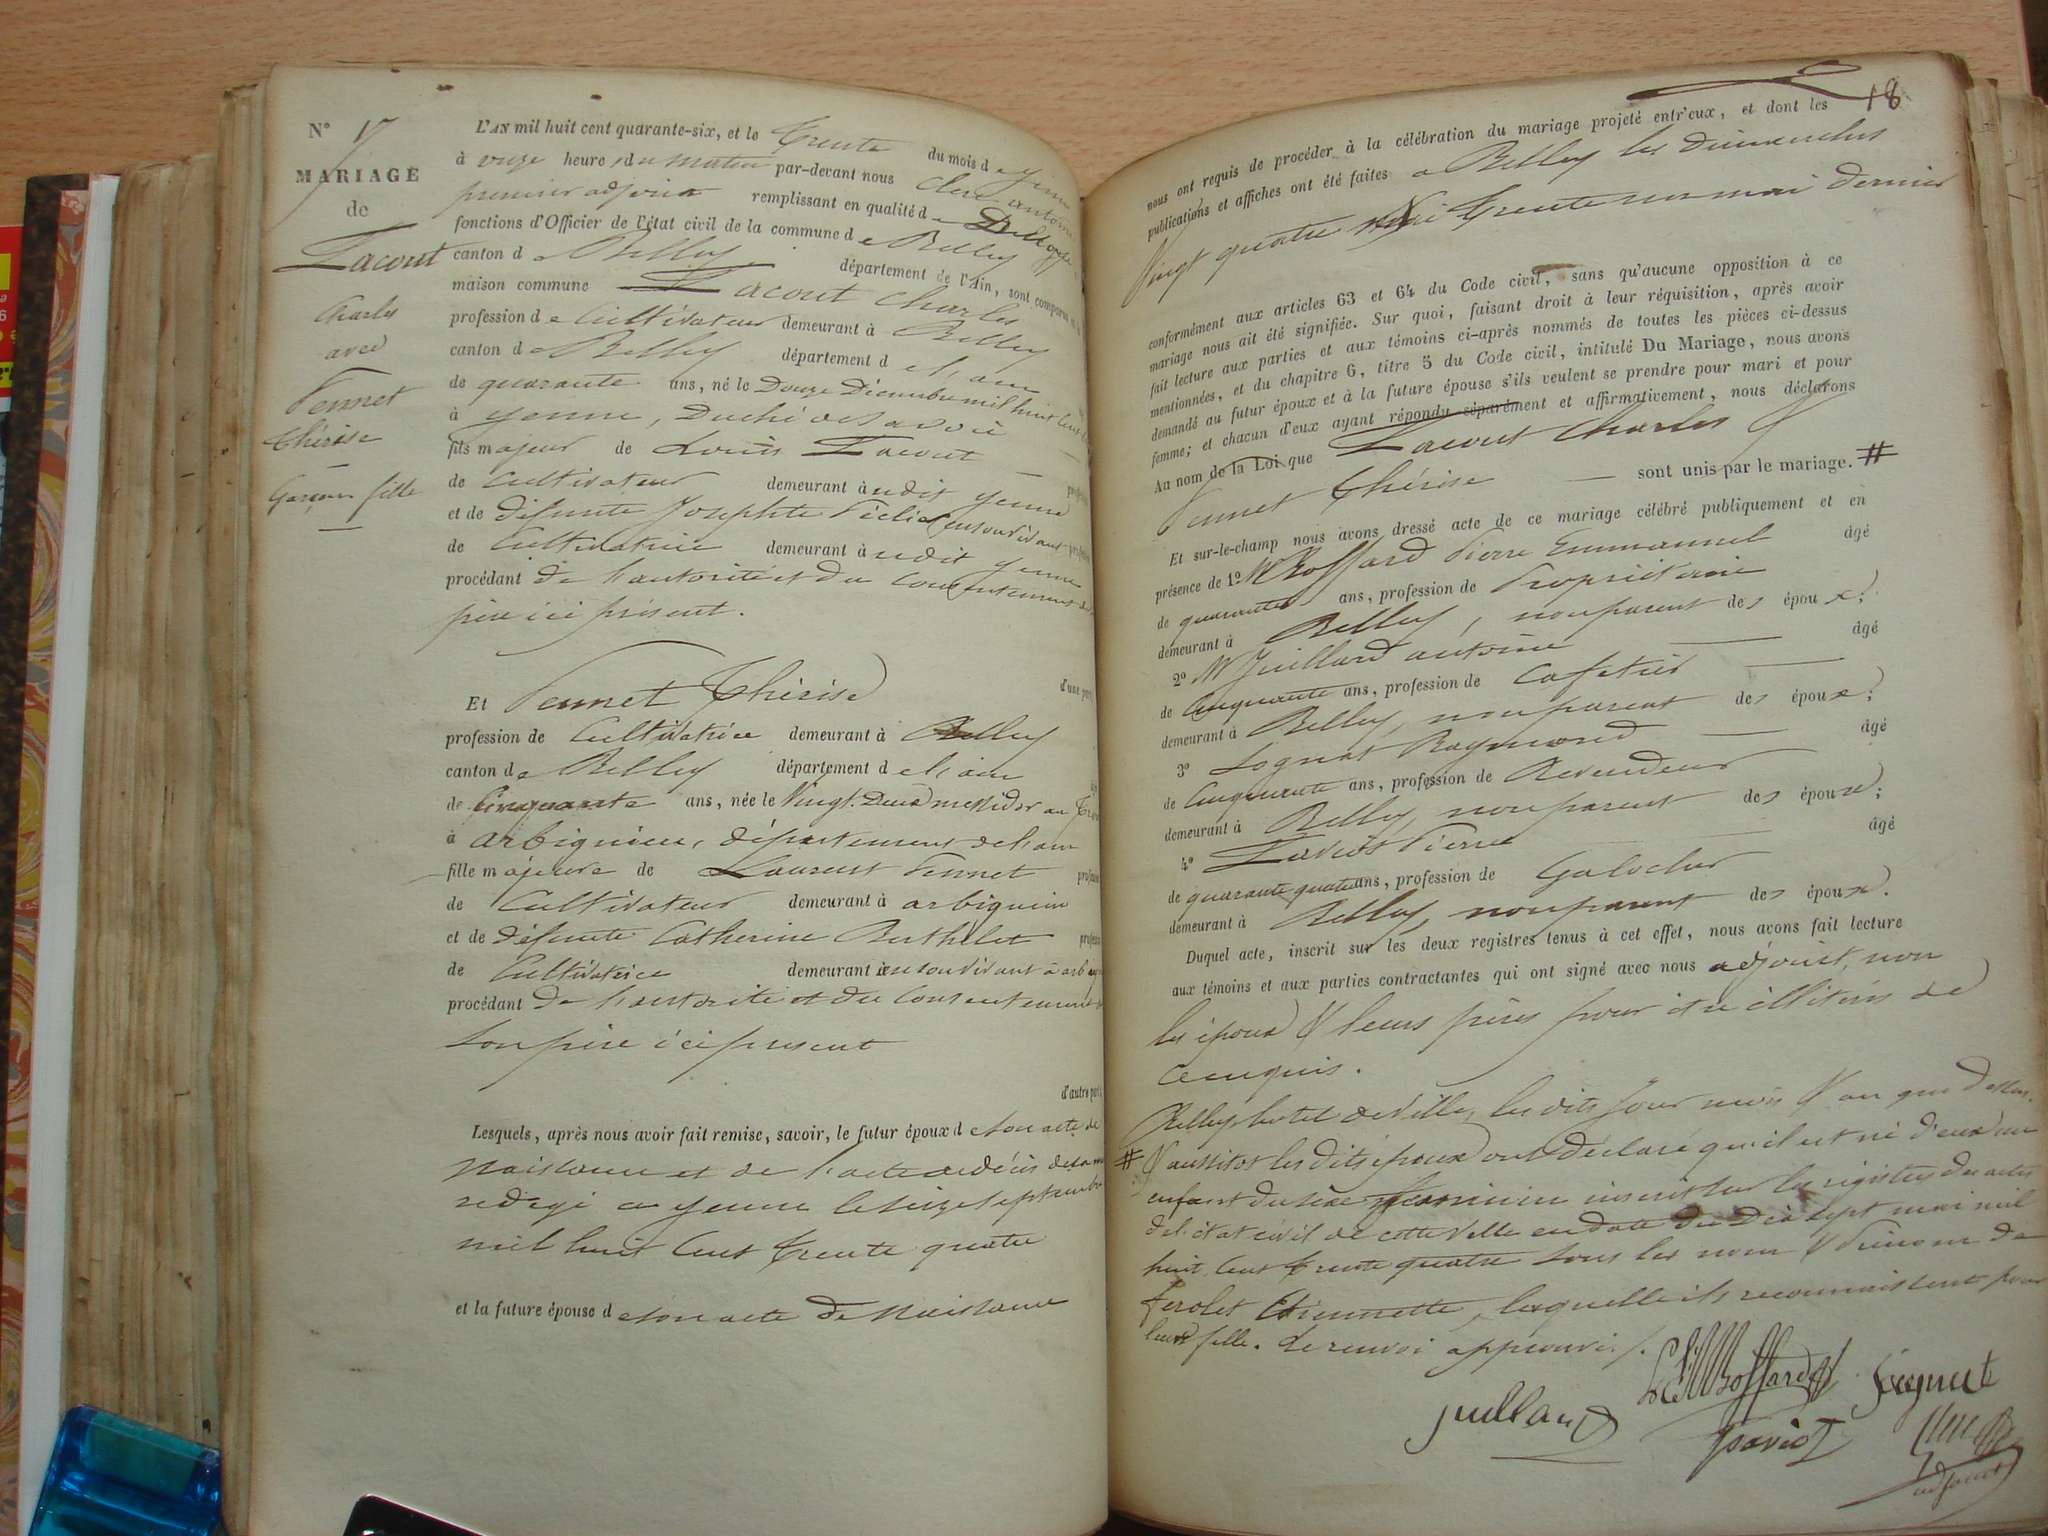 N° 17
MARIAGE
de
Lacout
Charles
avec
Pennet
Thérèse
Garçon fille
L'AN mil huit cent quarante-six, et le trente du mois de juin
à onze heures du matin par-devant nous
premier adjoint remplissant en qualité de
fonctions d'Officier de l'état civil de la commune de Belley
canton de Belley, département de l'Ain, sont comparus
maison commune Lacout Charles
profession de Cultivateur demeurant à Belley
canton de Belley département de l'ain
de quarante ans, né le Douze Décembre mil huit cent
à yenne, Duché de Savoie
fils majeur de Louis Lacout
de Cultivateur demeurant audit yenne
et de défunte Josephte en son vivant
de Cultivatrice demeurant audit yenne
procédant de l'autorité et du consentement de
père ici présent.
d'une part
Et Pennet Thérèse
profession de Cultivatrice demeurant à Belley
canton de Belley département de l'ain
de Cinquante ans, née le Vingt-Deux messidor an
à arbignieu, département de l'ain
fille majeure de Laurent Pennet
de Cultivateur demeurant à arbignieu
et de défunte Catherine Berthelet
de Cultivatrice demeurant en son vivant à
procédant de l'autorité et du consentement de
son père ici présent
d'autre part
Lesquels, après nous avoir fait remise, savoir, le futur époux de son acte de
Naissance et de l'acte de décès de sa
redigé a yenne le seize septembre
mil huit cent trente quatre
et la future épouse de son acte de Naissance
18
nous ont requis de procéder à la célébration du mariage projeté entr'eux, et dont les
publications et affiches ont été faites a Belley les Dimanches
Vingt quatre & trente un mai dernier
conformément aux articles 63 et 64 du Code civil, sans qu'aucune opposition à ce
mariage nous ait été signifiée. Sur quoi, faisant droit à leur réquisition, après avoir
fait lecture aux parties et aux témoins ci-après nommés de toutes les pièces ci-dessus
mentionnées, et du chapitre 6, titre 5 du Code civil, intitulé Du Mariage, nous avons
demandé au futur époux et à la future épouse s'ils veulent se prendre pour mari et pour
femme; et chacun d'eux ayant répondu séparément et affirmativement, nous déclarons
Au nom de la Loi que Lacout Charles &
Pennet Thérèse sont unis par le mariage. #
Et sur-le-champ nous avons dressé acte de ce mariage célébré publiquement et en
présence de 1° Mr Boffard Pierre Emmanuel âgé
de quarante ans, profession de Propriétaire
demeurant à Belley, non parent des époux;
2° Mr Juilland antoine âgé
de Cinquante ans, profession de Cafetier
demeurant à Belley, non parent des époux;
3° Sognat Raymond âgé
de Cinquante ans, profession de Revendeur
demeurant à Belley, non parent des époux;
4° Pierre âgé
de quarante quatre ans, profession de Galocher
demeurant à Belley, non parent des époux.
Duquel acte, inscrit sur les deux registres tenus à cet effet, nous avons fait lecture
aux témoins et aux parties contractantes qui ont signé avec nous adjoint, non
les époux & leurs pères pour être illitérés de
ce enquis.
Belley hotel de Ville, les dits jour mois & an que dessus.
# & aussitot les dits époux ont déclaré qu'il est né d'eux un
enfant du sexe féminin inscrit sur les registres des actes
de l'état civil de cette Ville en date du Dix sept mai mil
huit cent trente quatre sous les nom & Prénom de
Ferolet Etiennette, laquelle ils reconnaissent pour
leur fille. Le renvoi approuvé.
Juilland
Boffard
Sognat
Paviot
adjoint